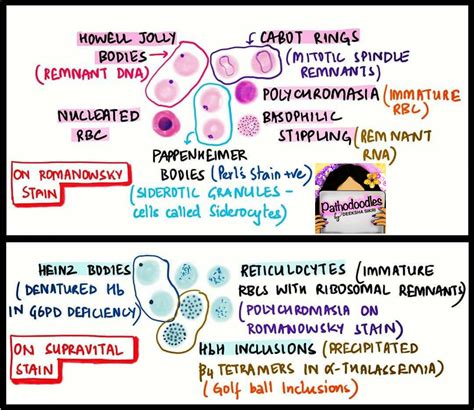 HOWELL JOLLY
BODIES
(REMNANT DNA)
CABOT RINGS
(MITOTIC SPINDLE
REMNANTS)
POLYCHROMASIA (IMMATURE
RBC)
NUCLEATED
RBC
BASOPHILIC
STIPPLING (REMNANT
RNA)
PAPPENHEIMER
BODIES (Perl's Stain +ve)
(SIDEROTIC GRANULES -
cells called Siderocytes)
ON ROMANOWSKY
STAIN
Pathodoodles
by DEEKSHA SIKRI
HEINZ BODIES
(DENATURED Hb
IN G6PD DEFICIENCY)
RETICULOCYTES (IMMATURE
RBCS WITH RIBOSOMAL REMNANTS)
(POLYCHROMASIA ON
ROMANOWSKY STAIN)
ON SUPRAVITAL
STAIN
HbH INCLUSIONS (PRECIPITATED
β4 TETRAMERS IN α-THALASSEMIA)
(Golf ball Inclusions)